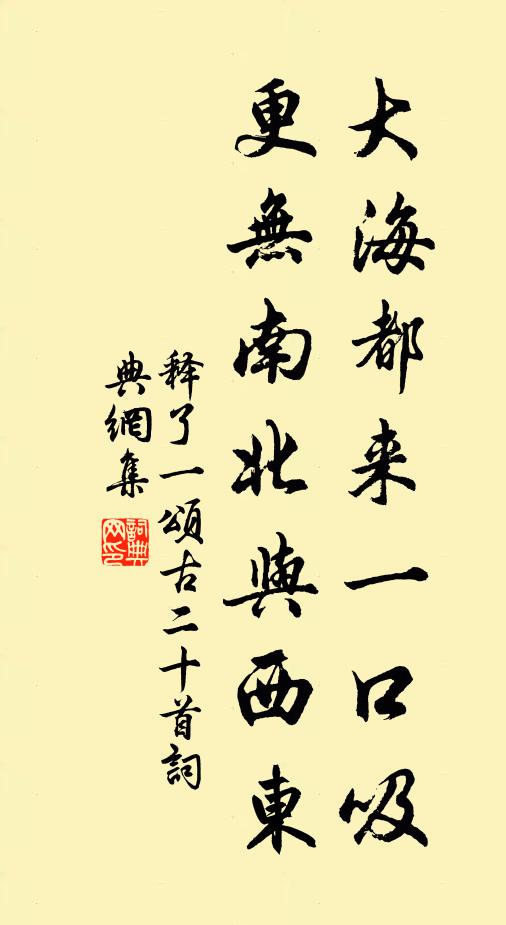 大海都来一口吸
更無南北與西東
释了一頌古二十首詞
典網集
詞典網印